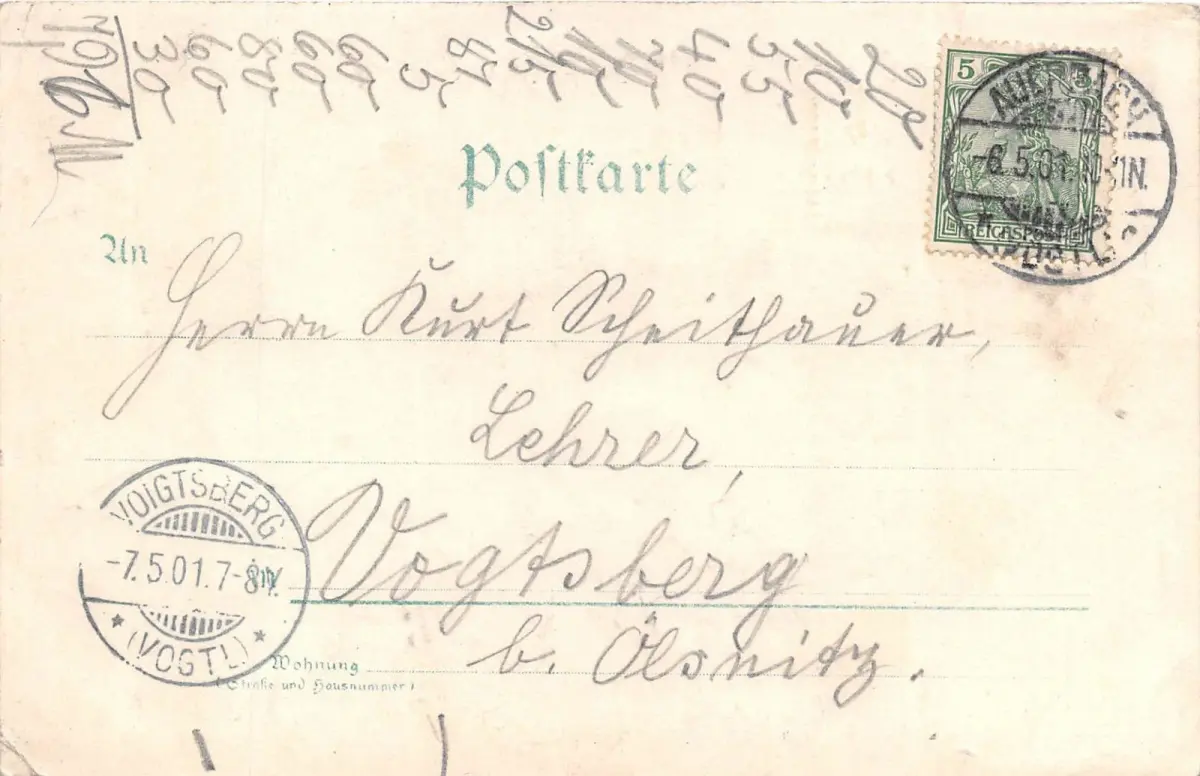 20
10
55
40
70
215
87
5
60
60
80
60
30
5
REICHSPOST
AUERBACH
-6.5.01.10-11N.
Postkarte
An
Herrn Kurt Scheithauer,
Lehrer,
Vogtsberg
b. Ölsnitz.
VOIGTSBERG
-7.5.01.7-8
(VOGTL)
Wohnung
(Straße und Hausnummer)